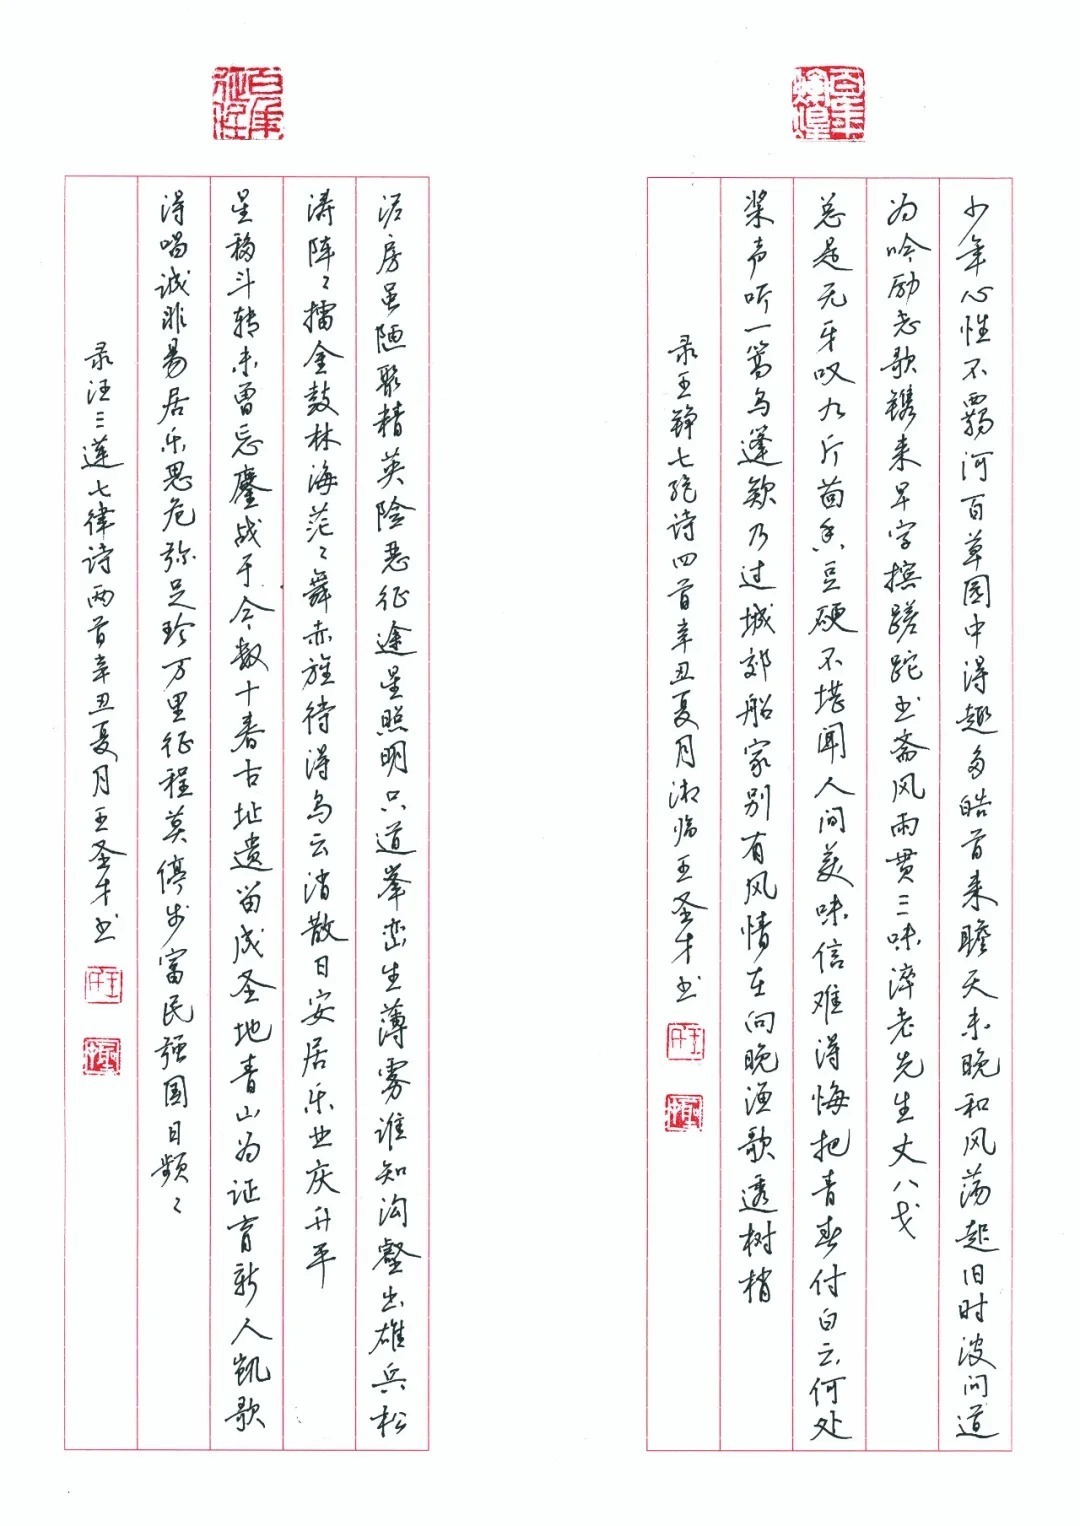 百年辉煌
少年心性不羁河百草园中得趣多皓首来瞻天未晚和风荡起旧时波问道
为吟励志歌镌来早字摈蹉跎书斋风雨贯三味淬老先生丈八戈
总是无牙叹九斤茴香豆硬不堪闻人间美味信难得悔把青春付白云何处
桨声听一篙乌篷欸乃过城郊船家别有风情在向晚渔歌透树梢
录王铮七绝诗四首辛丑夏月湘临王圣才书
百年征程
泥房虽陋聚精英险恶征途星照明只道峰峦生薄雾谁知沟壑出雄兵松
涛阵々擂金鼓林海茫々舞赤旌待得乌云消散日安居乐业庆升平
星移斗转未曾忘鏖战于今数十春古址遗留成圣地青山为证育新人凯歌
得唱诚非易居乐思危弥足珍万里征程莫停步富民强国日频々
录汪三莲七律诗两首辛丑夏月王圣才书